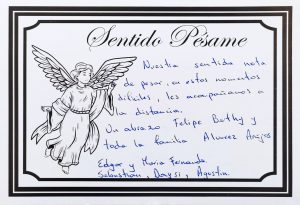 Sentido Pésame
Nuestra sentida nota
de pesar, en estos momentos
dificiles, les acompañamos a
la distancia.
Un abrazo Felipe Bethy y
toda la familia Alvarez Angos
Edgar y Maria Fernanda
Sebastian, Daysi, Agustin.